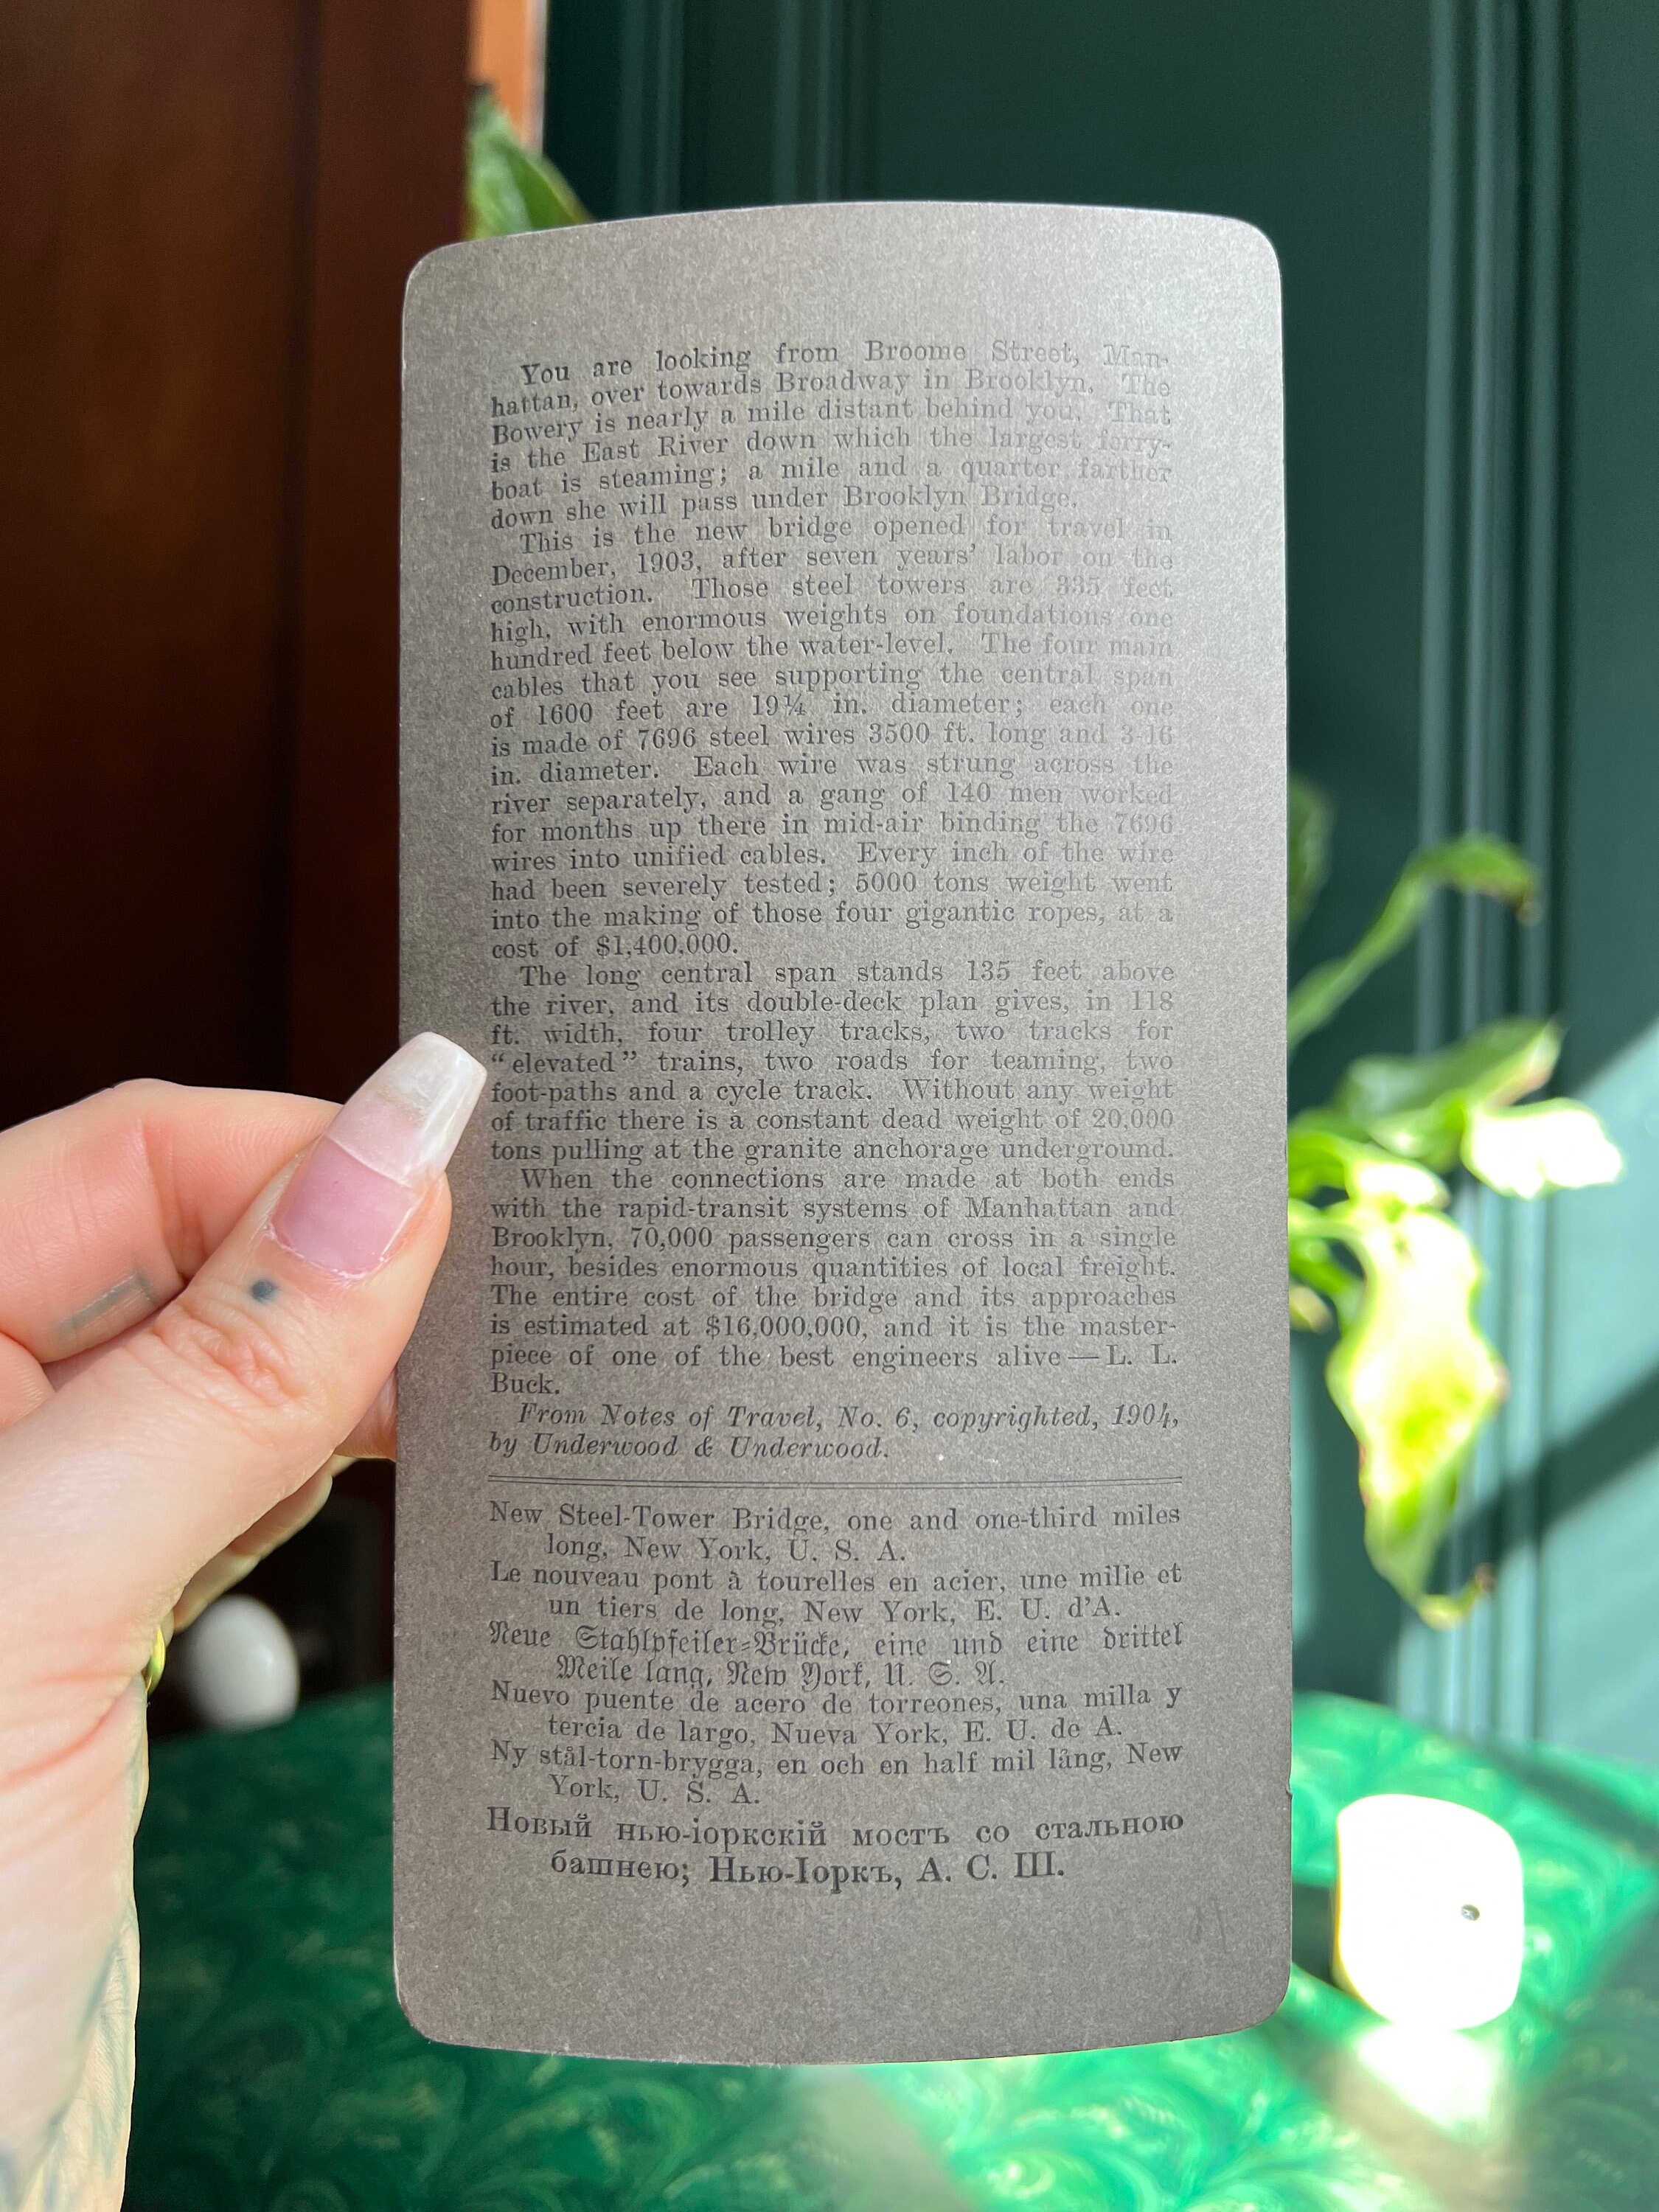 You are looking from Broome Street, Man-
hattan, over towards Broadway in Brooklyn. The
Bowery is nearly a mile distant behind you. That
is the East River down which the largest ferry-
boat is steaming; a mile and a quarter farther
down she will pass under Brooklyn Bridge.
This is the new bridge opened for travel in
December, 1903, after seven years' labor on the
construction. Those steel towers are 335 feet
high, with enormous weights on foundations one
hundred feet below the water-level. The four main
cables that you see supporting the central span
of 1600 feet are 19¼ in. diameter; each one
is made of 7696 steel wires 3500 ft. long and 3-16
in. diameter. Each wire was strung across the
river separately, and a gang of 140 men worked
for months up there in mid-air binding the 7696
wires into unified cables. Every inch of the wire
had been severely tested; 5000 tons weight went
into the making of those four gigantic ropes, at a
cost of $1,400,000.
The long central span stands 135 feet above
the river, and its double-deck plan gives, in 118
ft. width, four trolley tracks, two tracks for
“elevated” trains, two roads for teaming, two
foot-paths and a cycle track. Without any weight
of traffic there is a constant dead weight of 20,000
tons pulling at the granite anchorage underground.
When the connections are made at both ends
with the rapid-transit systems of Manhattan and
Brooklyn, 70,000 passengers can cross in a single
hour, besides enormous quantities of local freight.
The entire cost of the bridge and its approaches
is estimated at $16,000,000, and it is the master-
piece of one of the best engineers alive—L. L.
Buck.
From Notes of Travel, No. 6, copyrighted, 1904,
by Underwood & Underwood.
New Steel-Tower Bridge, one and one-third miles
long, New York, U. S. A.
Le nouveau pont à tourelles en acier, une milie et
un tiers de long, New York, E. U. d'A.
Neue Stahlpfeiler-Brücke, eine und eine drittel
Meile lang, New York, U. S. A.
Nuevo puente de acero de torreones, una milla y
tercia de largo, Nueva York, E. U. de A.
Ny stål-torn-brygga, en och en half mil lång, New
York, U. S. A.
Новый нью-іоркскій мостъ со стальною
башнею; Нью-Іоркъ, А. С. Ш.